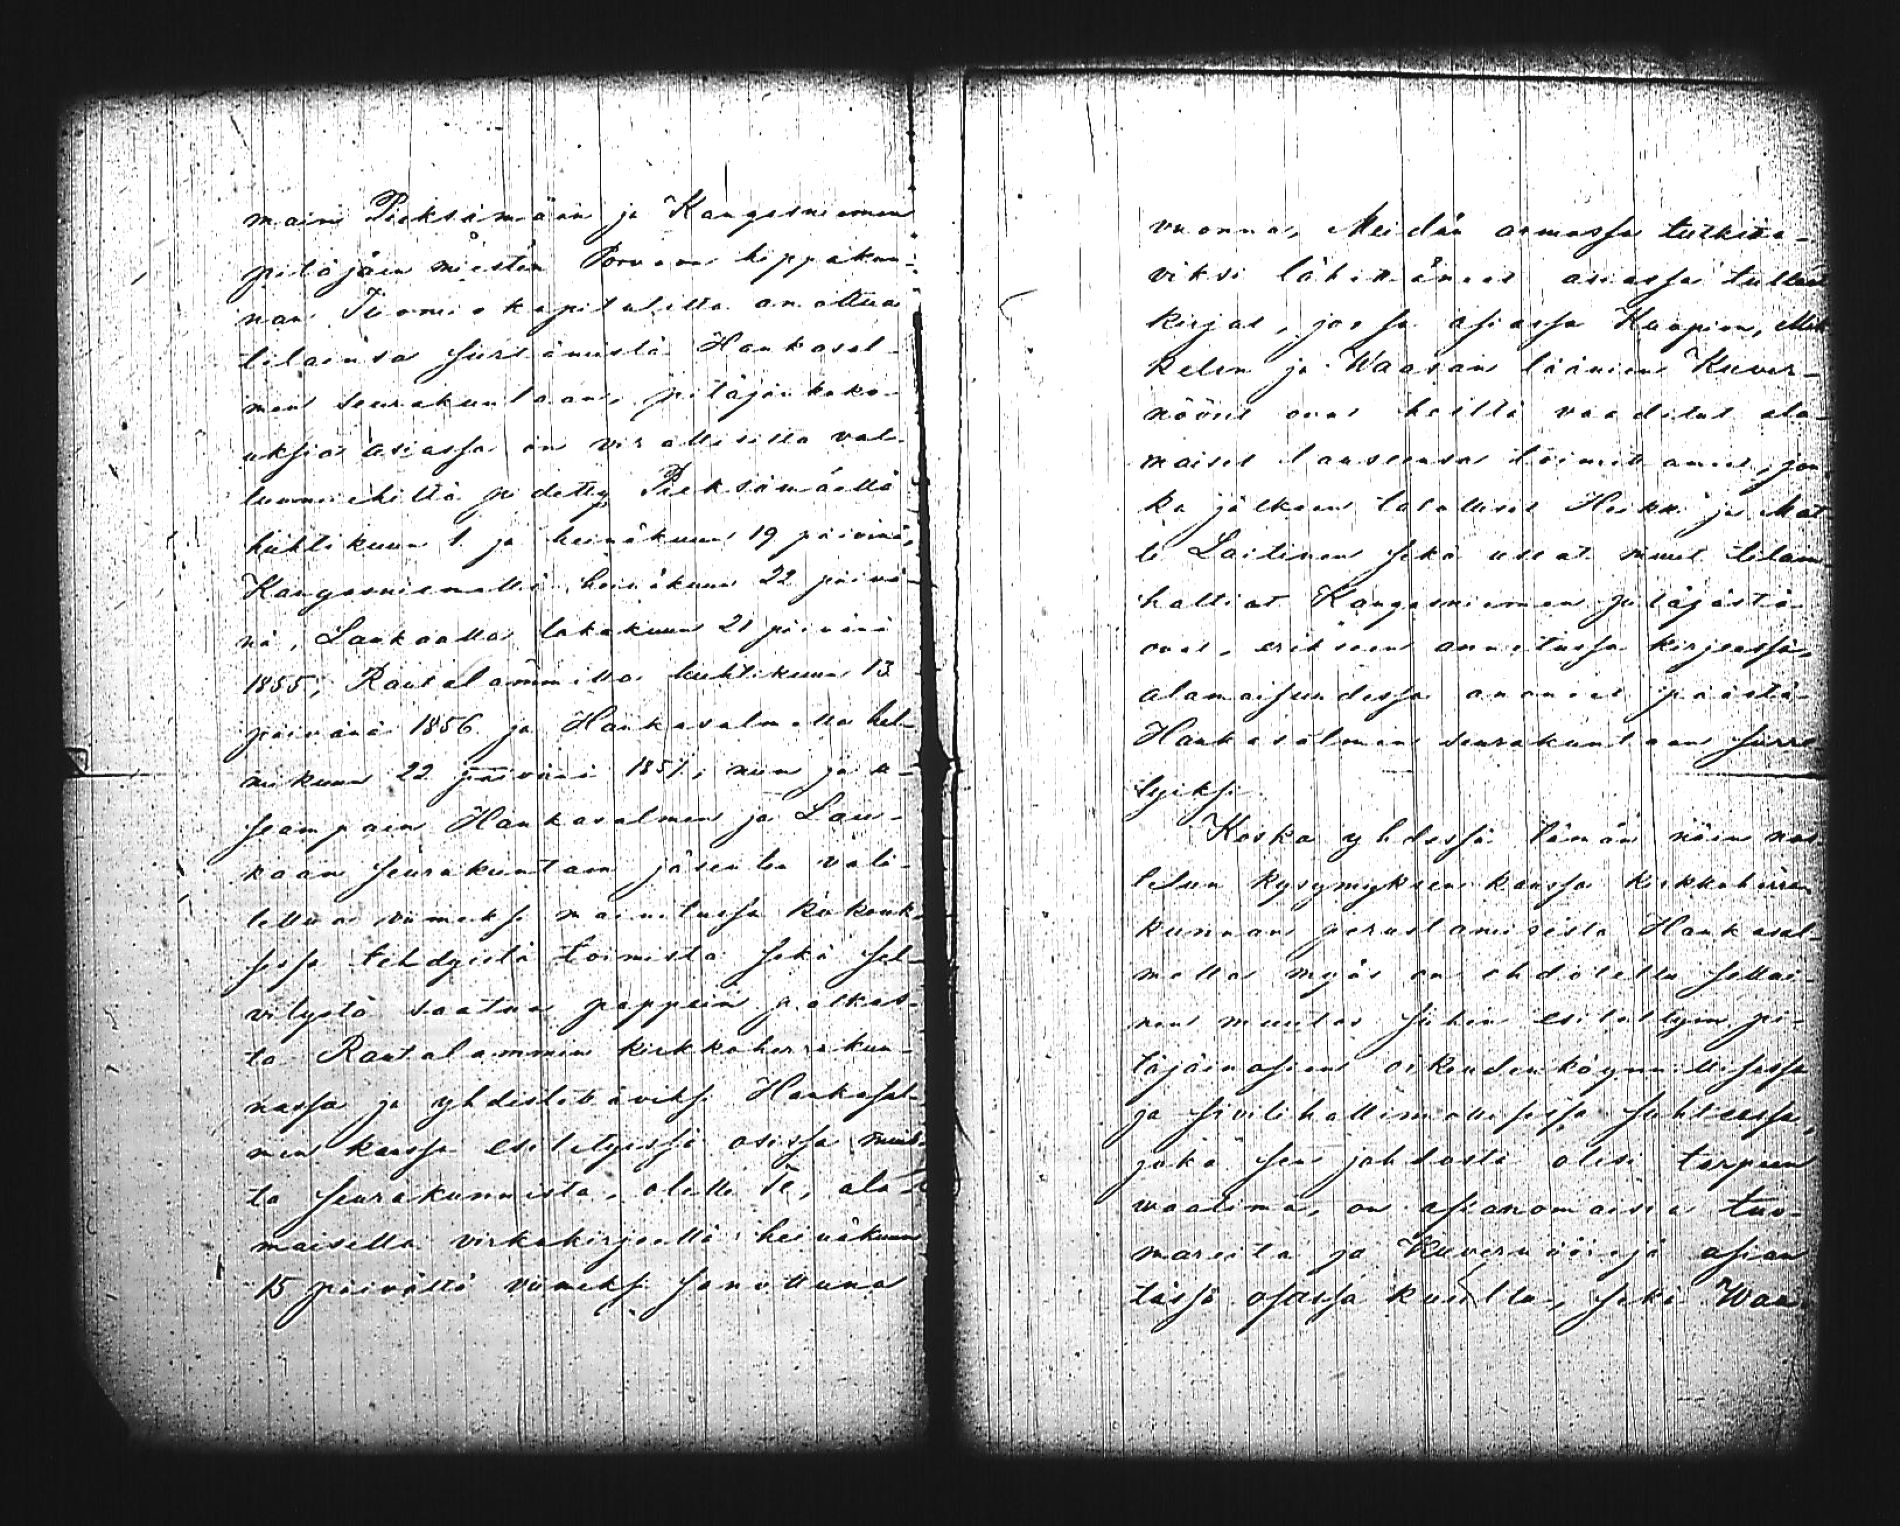 maini Pieksämään ja Kangasniemen
pitäjäen miesten Porvoon hippakun-
nan Tuomiokapitulilta anottua
tilainsa siirtämistä Hankasal-
men seurakuntaan, pitäjänkoko-
uksia asiassa on virallisilta val-
tuumiehiltä pidetty Pieksämäellä
huhtikuun 1 ja heinäkuun 19 päivinä,
Kangasniemellä heinäkuun 22 päivä-
nä, Laukaalla lokakuun 21 päivänä
1855, Rautalammilla huhtikuun 13
päivänä 1856 ja Hankasalmella hel-
mikuun 22 päivänä 1857; niin ja u-
seampain Hankasalmen ja Lau-
kaan seurakuntain jäsenten vali-
tettua viimeksi mainitussa kokouk-
sessa tehdyistä toimista sekä sel-
vitystä saatua pappein palkas-
ta Rautalammin kirkkoherrakun-
nassa ja yhdistettäviksi Hankasal-
men kanssa esitetyissä osissa muis-
ta seurakunnista, olette Te, ala-
maisella virkakirjeellä heinäkuun
15 päivältä viimeksi sanottuna
vuonna, Meidän armossa tutkitta-
viksi lähettäneet asiassa tulleet
kirjat, jossa asiassa Kuopion, Mik-
kelin ja Waasan läänien Kuver-
nöörit ovat heiltä vaaditut ala-
maiset lauseensa toimittaneet, jon-
ka jälkeen talolliset Heikki ja Mat-
ti Laitinen sekä useat muut tilan-
haltiat Kangasniemen pitäjästä
ovat, erikseen annetussa kirjeessä,
alamaisuudessa anoneet päästä
Hankasalmen seurakuntaan siirre-
tyiksi.
Koska yhdessä tämän näin nos-
tetun kysymyksen kanssa kirkkoherra-
kunnan perustamisesta Hankasal-
mella myös on ehdoteltu sellai-
nen muutos siihen esitettyin pi-
täjäinosien oikeudenkäynnillisessä
ja siviilihallinnollisessa suhteessa,
joka sen johdosta olisi tarpeen
waatima, on asianomaisia tuo-
mareita ja Kuvernöörejä asian
tässä osassa kuultu, sekä Waa-